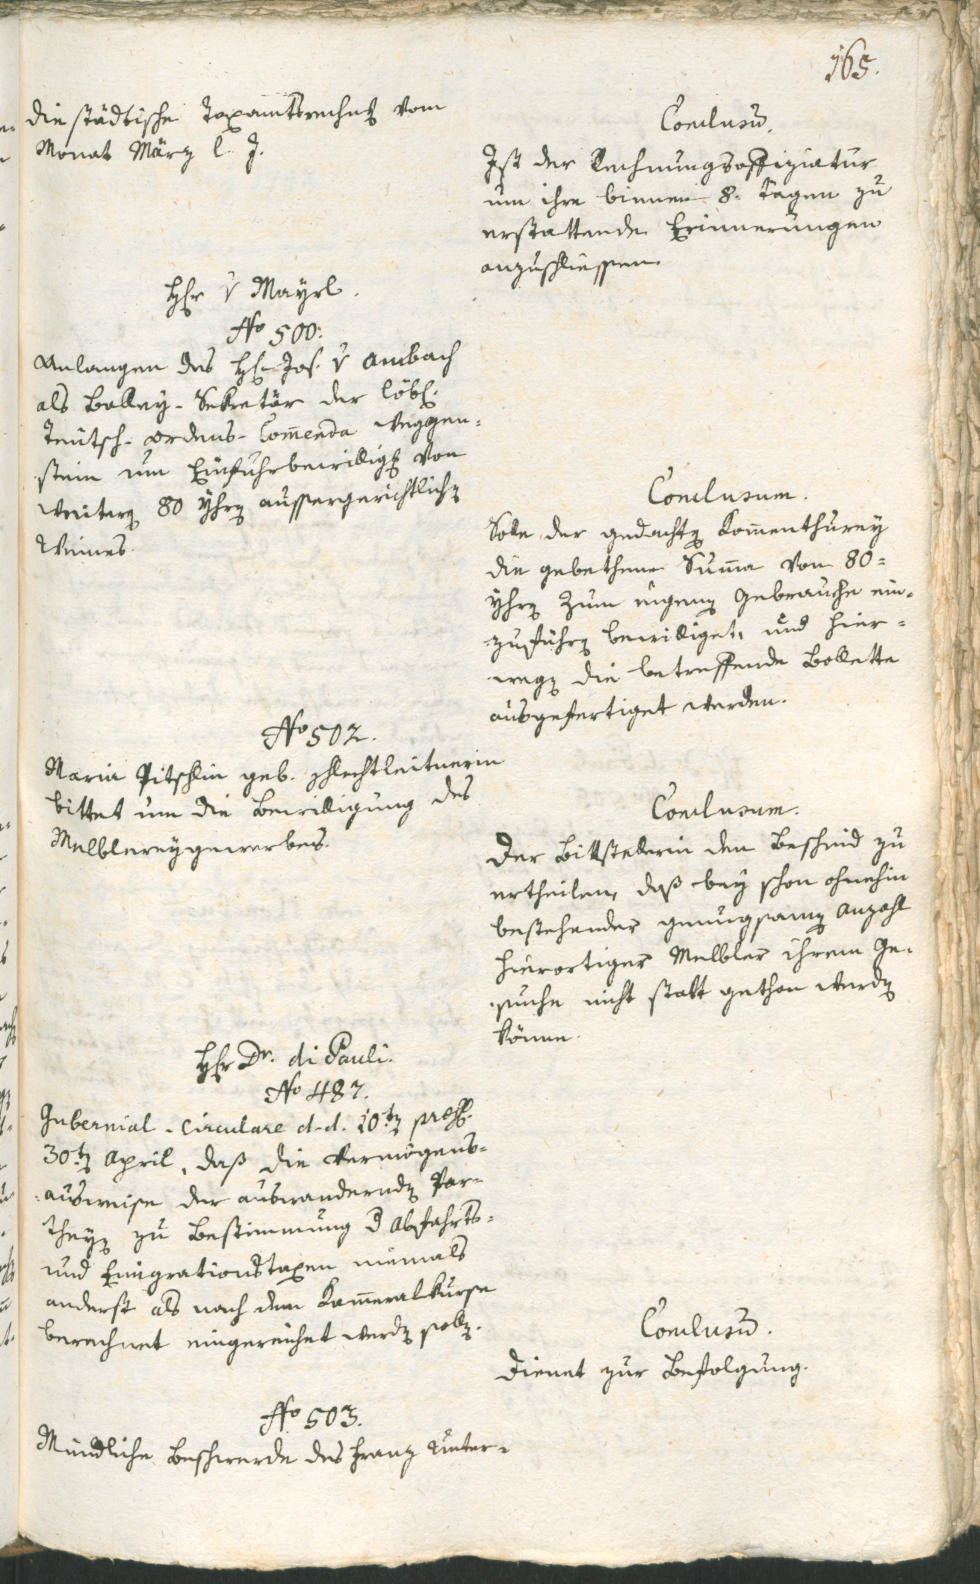 165.
die städtische Taxamtsrechnung vom
Monat März l. J.
Conclusum.
Ist der Rechnungsoffiziatur
um ihre binnen 8. Tagen zu
erstattende Erinnerungen
anzuschliessen.
Hr v Mayrl.
No 500.
Anlangen des H. Jos. v Ambach
als Balley-Sekretär der löbl.
Teutsch-Ordens-Commenda Weggen-
stein um Einfuhrbewilligung von
weiteren 80 Yhren aussergerichtlichen
Weines.
Conclusum.
Solle der gedachten Kommenthurey
die gebethene Summa von 80
Yhren zum eigenen Gebrauche ein-
zuführen bewilliget, und hier-
wegen die betreffende Bollette
ausgefertiget werden.
No 502.
Maria Pitschlin geb. Schlechtleitnerin
bittet um die Bewilligung des
Melblereygewerbes.
Conclusum.
Der Bittstellerin den Bescheid zu
ertheilen, daß bey schon ohnehin
bestehender genugsamen Anzahl
hierortiger Melbler ihrem Ge-
suche nicht statt gethan werden
könne.
Hr Dr. di Pauli.
No 487.
Gubernial-Circulare d. d. 10ten
30ten April, daß die Vermögens-
ausweise der auswandernden Par-
theyen zu Bestimmung d Abfahrts-
und Emigrationstaxen niemals
anderst als nach dem Kammeralkurse
berechnet eingereichet werden sollen.
Conclusum.
Dienet zur Befolgung.
No 503.
Mündliche Beschwerde des Franz Unter-